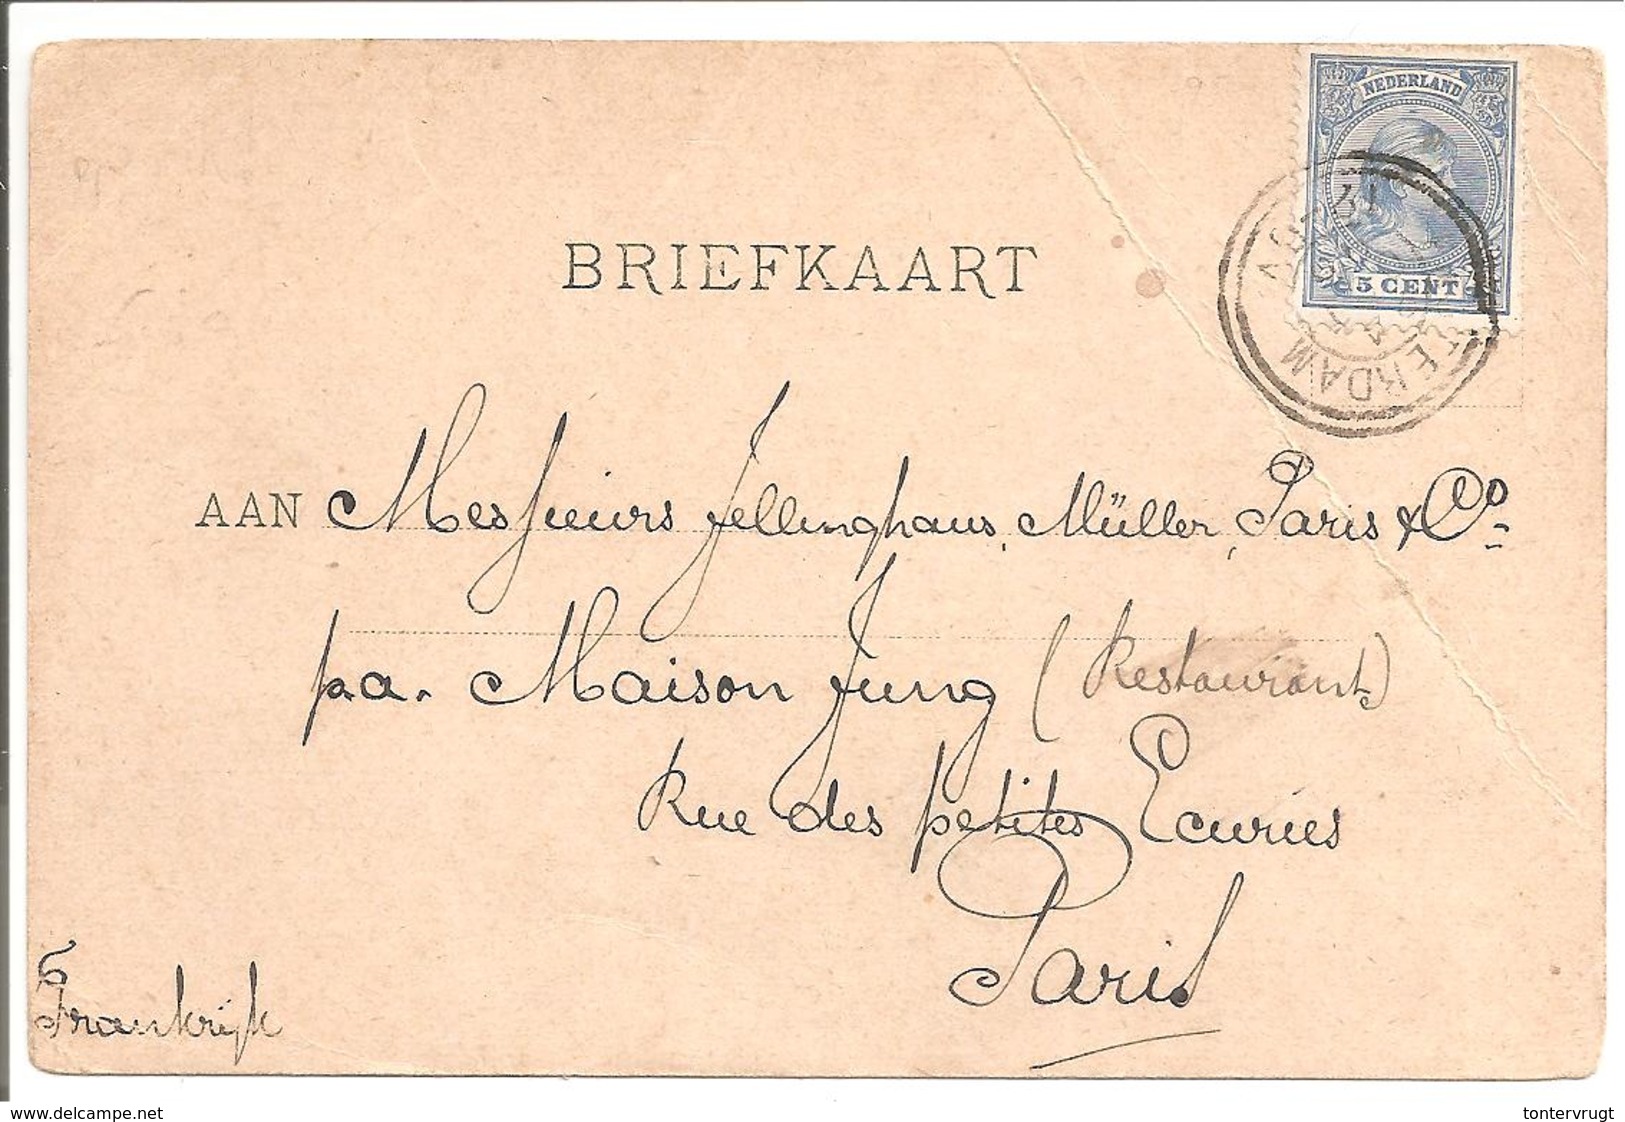 NEDERLAND
5 CENT
BRIEFKAART
AAN Messieurs Jellinghaus, Müller, Paris & Co.
p.a. Maison Jung (Restaurant)
Rue des petites Ecuries
Paris
Frankrijk
www.delcampe.net
tontervrugt